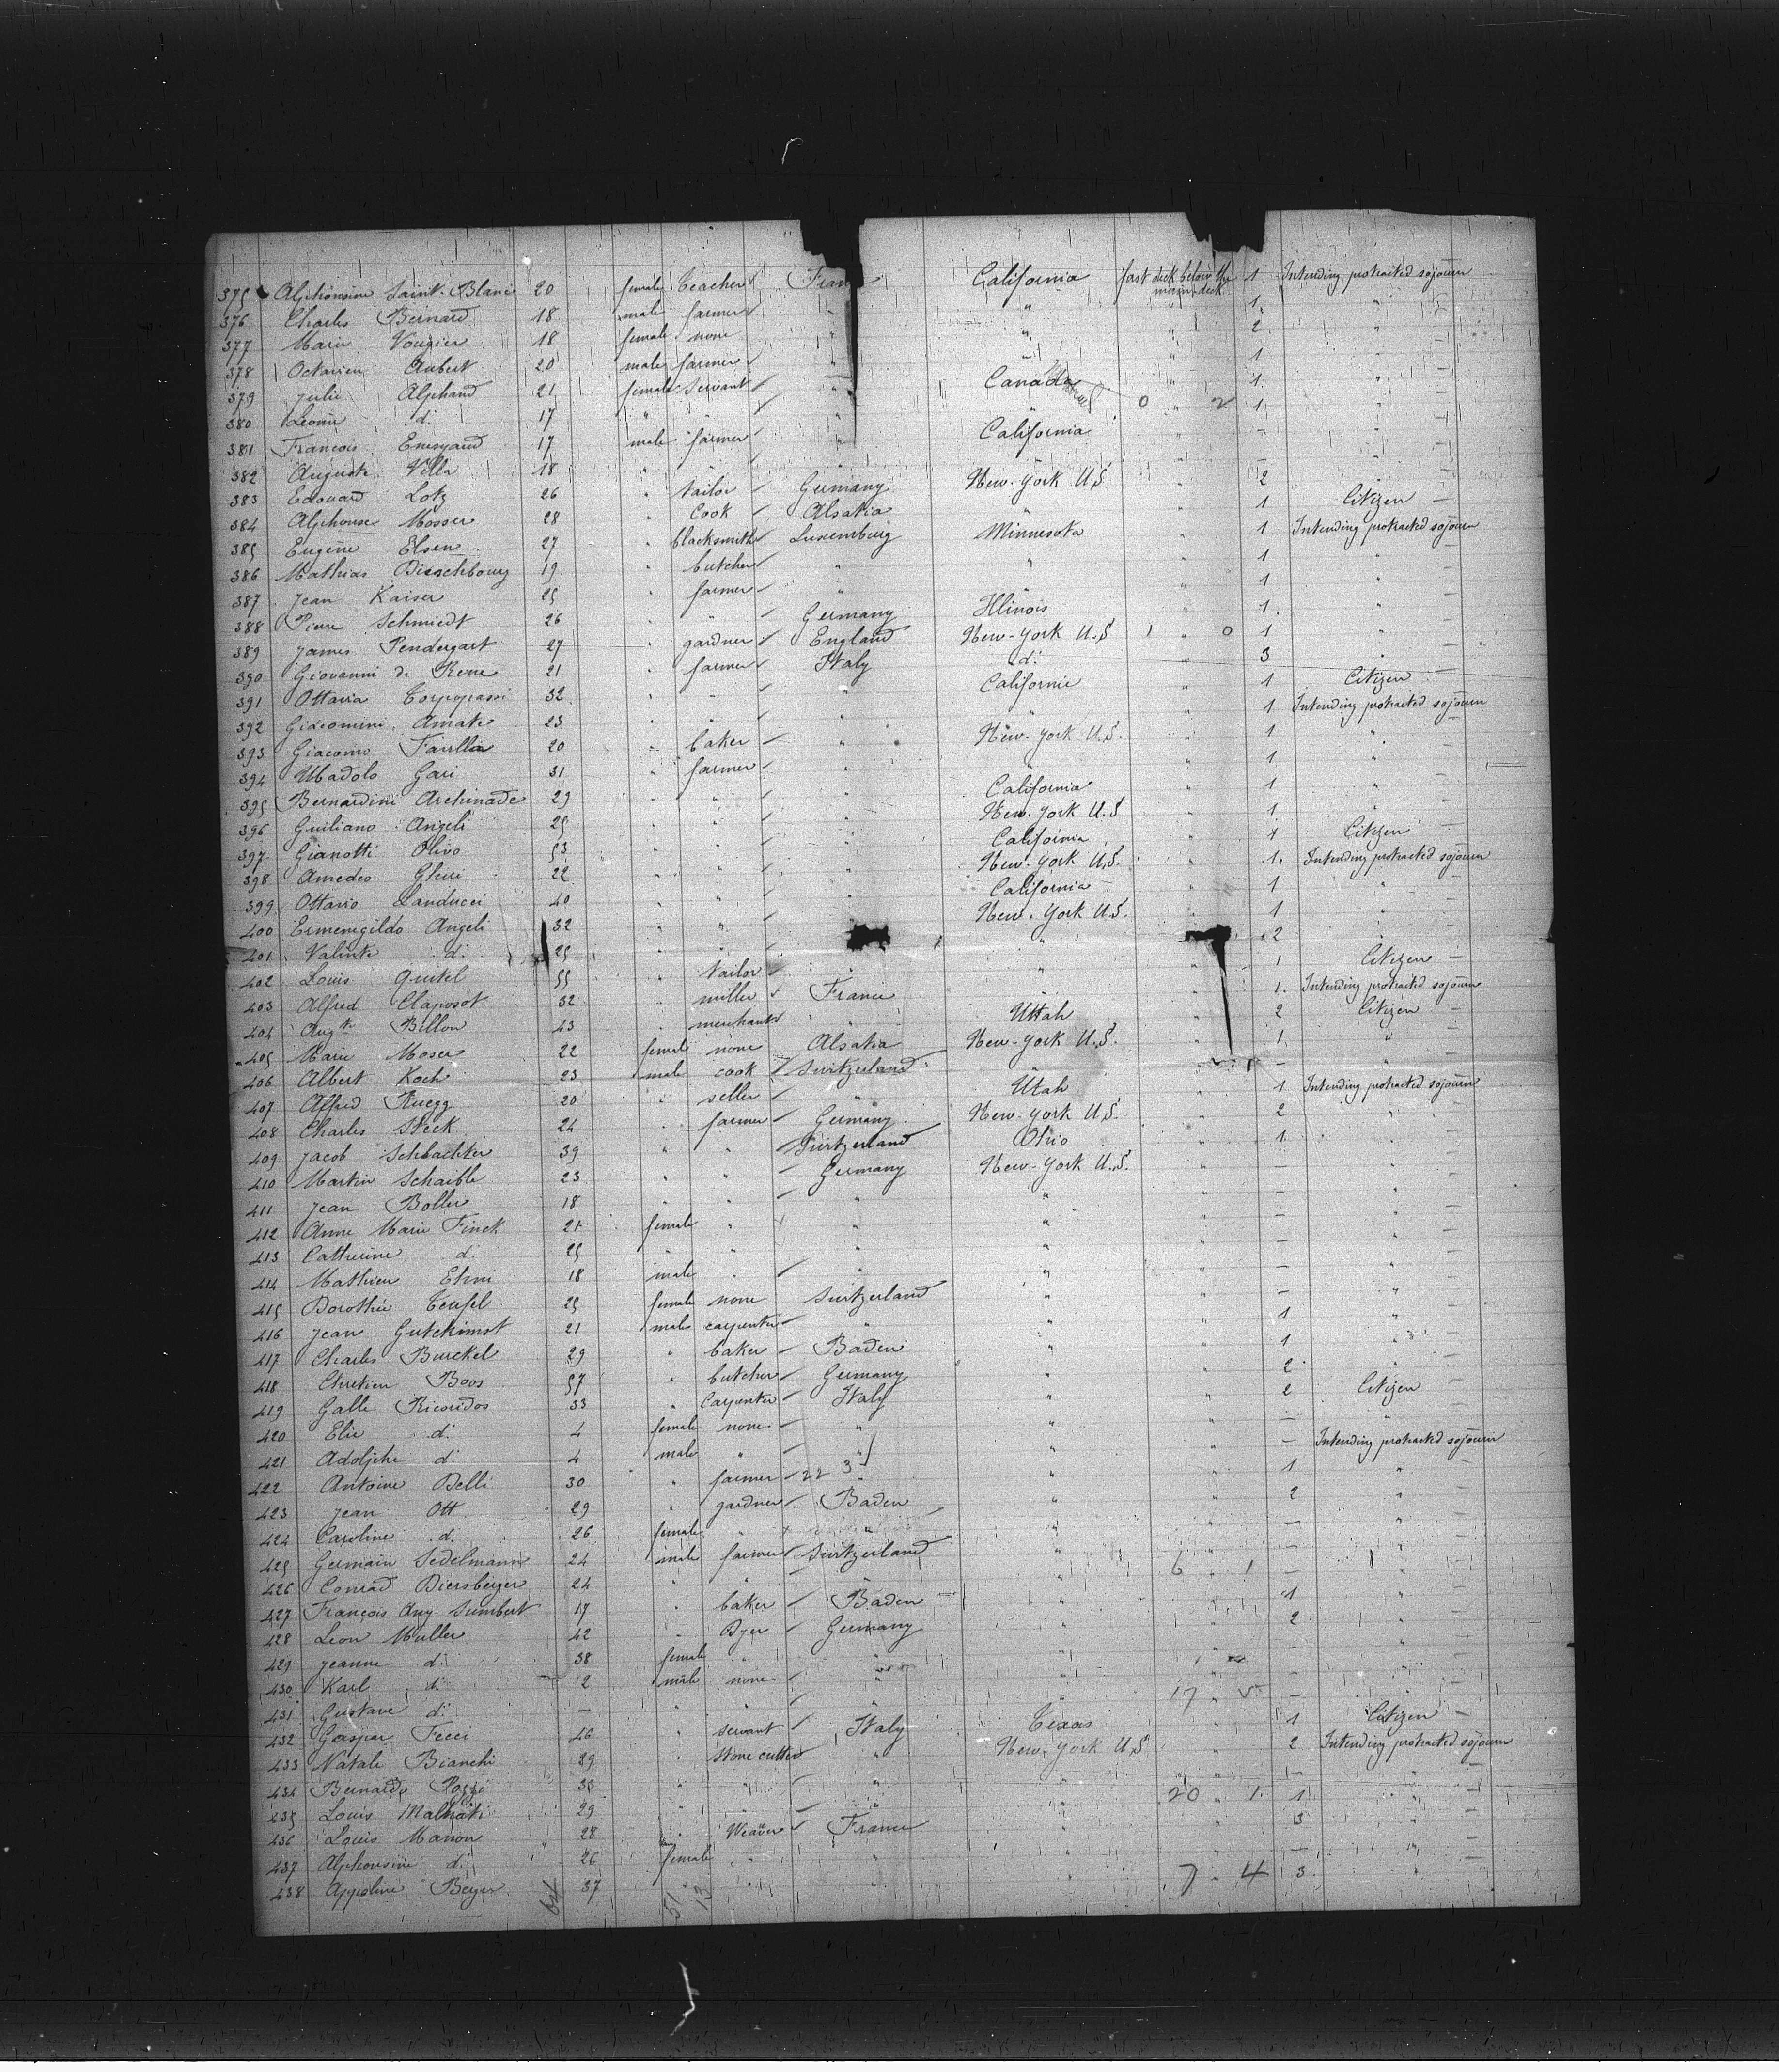 375 Alphonsine Saint-Blanc 20 female teacher Fran California fast deck below the main-deck 1 Intending protracted sojourn
376 Charles Bernard 18 male farmer " " " 1 " —
377 Marie Vougier 18 female none " " " 2 " —
378 Octavien Aubert 20 male farmer " " " 1 " —
379 Julie Alphand 21 female servant " Canada " 1 " —
380 Léonie d: 17 " " " " 0 " 2 1 " —
381 François Eneyaud 17 male farmer " California " — " —
382 Auguste Villa 18 " " " " " — " —
383 Edouard Lotz 26 " tailor Germany New-York U.S " 2 " —
384 Alphonse Mosser 28 " Cook Alsatia " " 1 Citizen —
385 Eugène Elsen 27 " blacksmith Luxemburg Minnesota " 1 Intending protracted sojourn
386 Mathias Disschbourg 19 " butcher " " " 1 " —
387 Jean Kaiser 25 " farmer " " " 1 " —
388 Pierre Schmiedt 26 " " Germany Illinois " 1 " —
389 James Pendergart 27 " gardner England New-York U.S 1 " 0 1 " —
390 Giovanni de Rene 21 " farmer Italy d: " 3 " —
391 Ottavia Torpopassi 32 " " " Californie " 1 Citizen —
392 Giacomini Amate 23 " " " " " 1 Intending protracted sojourn
393 Giacomo Farilla 20 " baker " New-York U.S. " 1 " —
394 Ubadolo Gari 31 " farmer " " " 1 " —
395 Bernardini Archinade 29 " " " California " 1 " —
396 Guiliano Angeli 25 " " " New-York U.S " 1 " —
397 Gianotti Olivo 53 " " " California " 1 Citizen —
398 Amedeo Gheri 22 " " " New-York U.S. " 1 Intending protracted sojourn
399 Ottavio Landucci 40 " " " California " 1 " —
400 Ermenegildo Angeli 32 " " " New-York U.S. " 1 " —
401 Valinte d: 25 " " " " 2 " —
402 Louis Quitel 55 " tailor " " " 1 Citizen —
403 Alfred Claposot 32 " miller France " " 1 Intending protracted sojourn
404 Augte Billon 43 " merchant " Uttah " 2 Citizen —
405 Marie Moser 22 female none Alsatia New-York U.S. " 1 " —
406 Albert Koch 23 male cook Switzerland " " — " —
407 Alfred Ruegg 20 " seller " Utah " 1 Intending protracted sojourn
408 Charles Steck 24 " farmer Germany New-York U.S. " 2 " —
409 Jacob Schlachter 39 " " Switzerland Ohio " 1 " —
410 Martin Schaible 23 " " Germany New-York U.S. " — " —
411 Jean Boller 18 " " " " " — " —
412 Anne Marie Finck 21 female " " " " — " —
413 Catherine d: 25 " " " " " — " —
414 Mathieu Etini 18 male " " " " — " —
415 Dorothée Teufel 25 female none Switzerland " " — " —
416 Jean Gutekimot 21 male carpenter " " " 1 " —
417 Charles Burckel 29 " baker Baden " " 1 " —
418 Chretien Boos 57 " butcher Germany " " 2 " —
419 Galle Ricoridos 33 " Carpenter Italy " " 2 Citizen —
420 Elie d: 4 female none " " " — " —
421 Adolphe d: 4 male " " " " — Intending protracted sojourn
422 Antoine Delli 30 " farmer 22 3 " " 1 " —
423 Jean Ott 29 " gardner Baden " " 2 " —
424 Caroline d: 26 female " " " " — " —
425 Germain Sedelmann 24 male farmer Switzerland " " — " —
426 Conrad Diersberger 24 " " " " 6 " 1 — " —
427 François Any Sumbert 17 " baker Baden " " 1 " —
428 Leon Muller 42 " Dyer Germany " " 2 " —
429 Jeanne d: 38 female " " " " — " —
430 Karl d: 2 male none " " " — " —
431 Gustave d: — " " " " 17 " — " —
432 Gaspar Fecci 46 " servant Italy Texas " 1 Citizen —
433 Natale Bianchi 29 " Stone cutter " New-York U.S " 2 Intending protracted sojourn
434 Bernardo Pozzi 33 " " " " " — " —
435 Louis Malnati 29 " " " " 20 " 1 1 " —
436 Louis Manon 28 " Weaver France " " 3 " —
437 Alphonsine d: 26 female " " " " — " —
438 Appoline Beyer 37 " " " " 7 " 4 3 " —
51 13